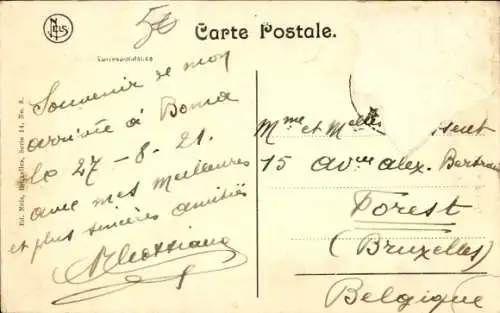 NELS
50
Carte Postale.
Correspondance
Souvenir de mon
arrivée à Boma
le 27-8-21.
avec mes meilleures
et plus sincères amitiés
Ed. Nels, Bruxelles, Serie 14, No. 8.
Mme et Melles
15 Avue Alex. Bertrand
Forest
(Bruxelles)
Belgique